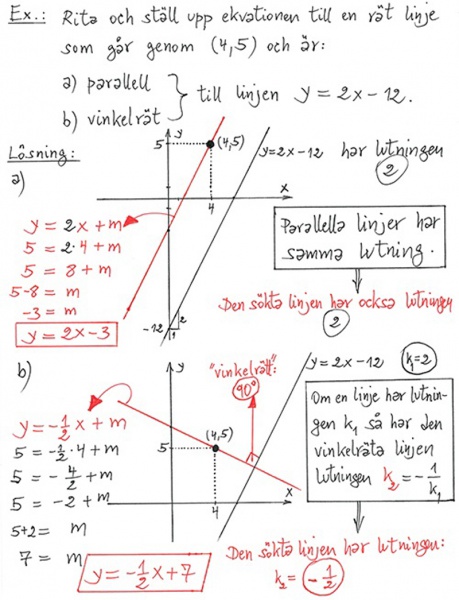 Ex.: Rita och ställ upp ekvationen till en rät linje
som går genom (4,5) och är:
a) parallell
b) vinkelrät
till linjen y = 2x − 12.
Lösning:
a)
y = 2x + m
5 = 2·4 + m
5 = 8 + m
5−8 = m
−3 = m
y = 2x − 3
y
5
(4,5)
x
4
−12
2
1
y = 2x − 12 har lutningen
2
Parallella linjer har
samma lutning.
Den sökta linjen har också lutningen
2
b)
y = −1/2 x + m
5 = −1/2·4 + m
5 = −4/2 + m
5 = −2 + m
5+2 = m
7 = m
y = −1/2 x + 7
y
"vinkelrätt":
90°
5
(4,5)
x
4
y = 2x − 12
k₁=2
Om en linje har lutnin-
gen k₁ så har den
vinkelräta linjen
lutningen k₂ = −1/k₁
Den sökta linjen har lutningen:
k₂ = −1/2